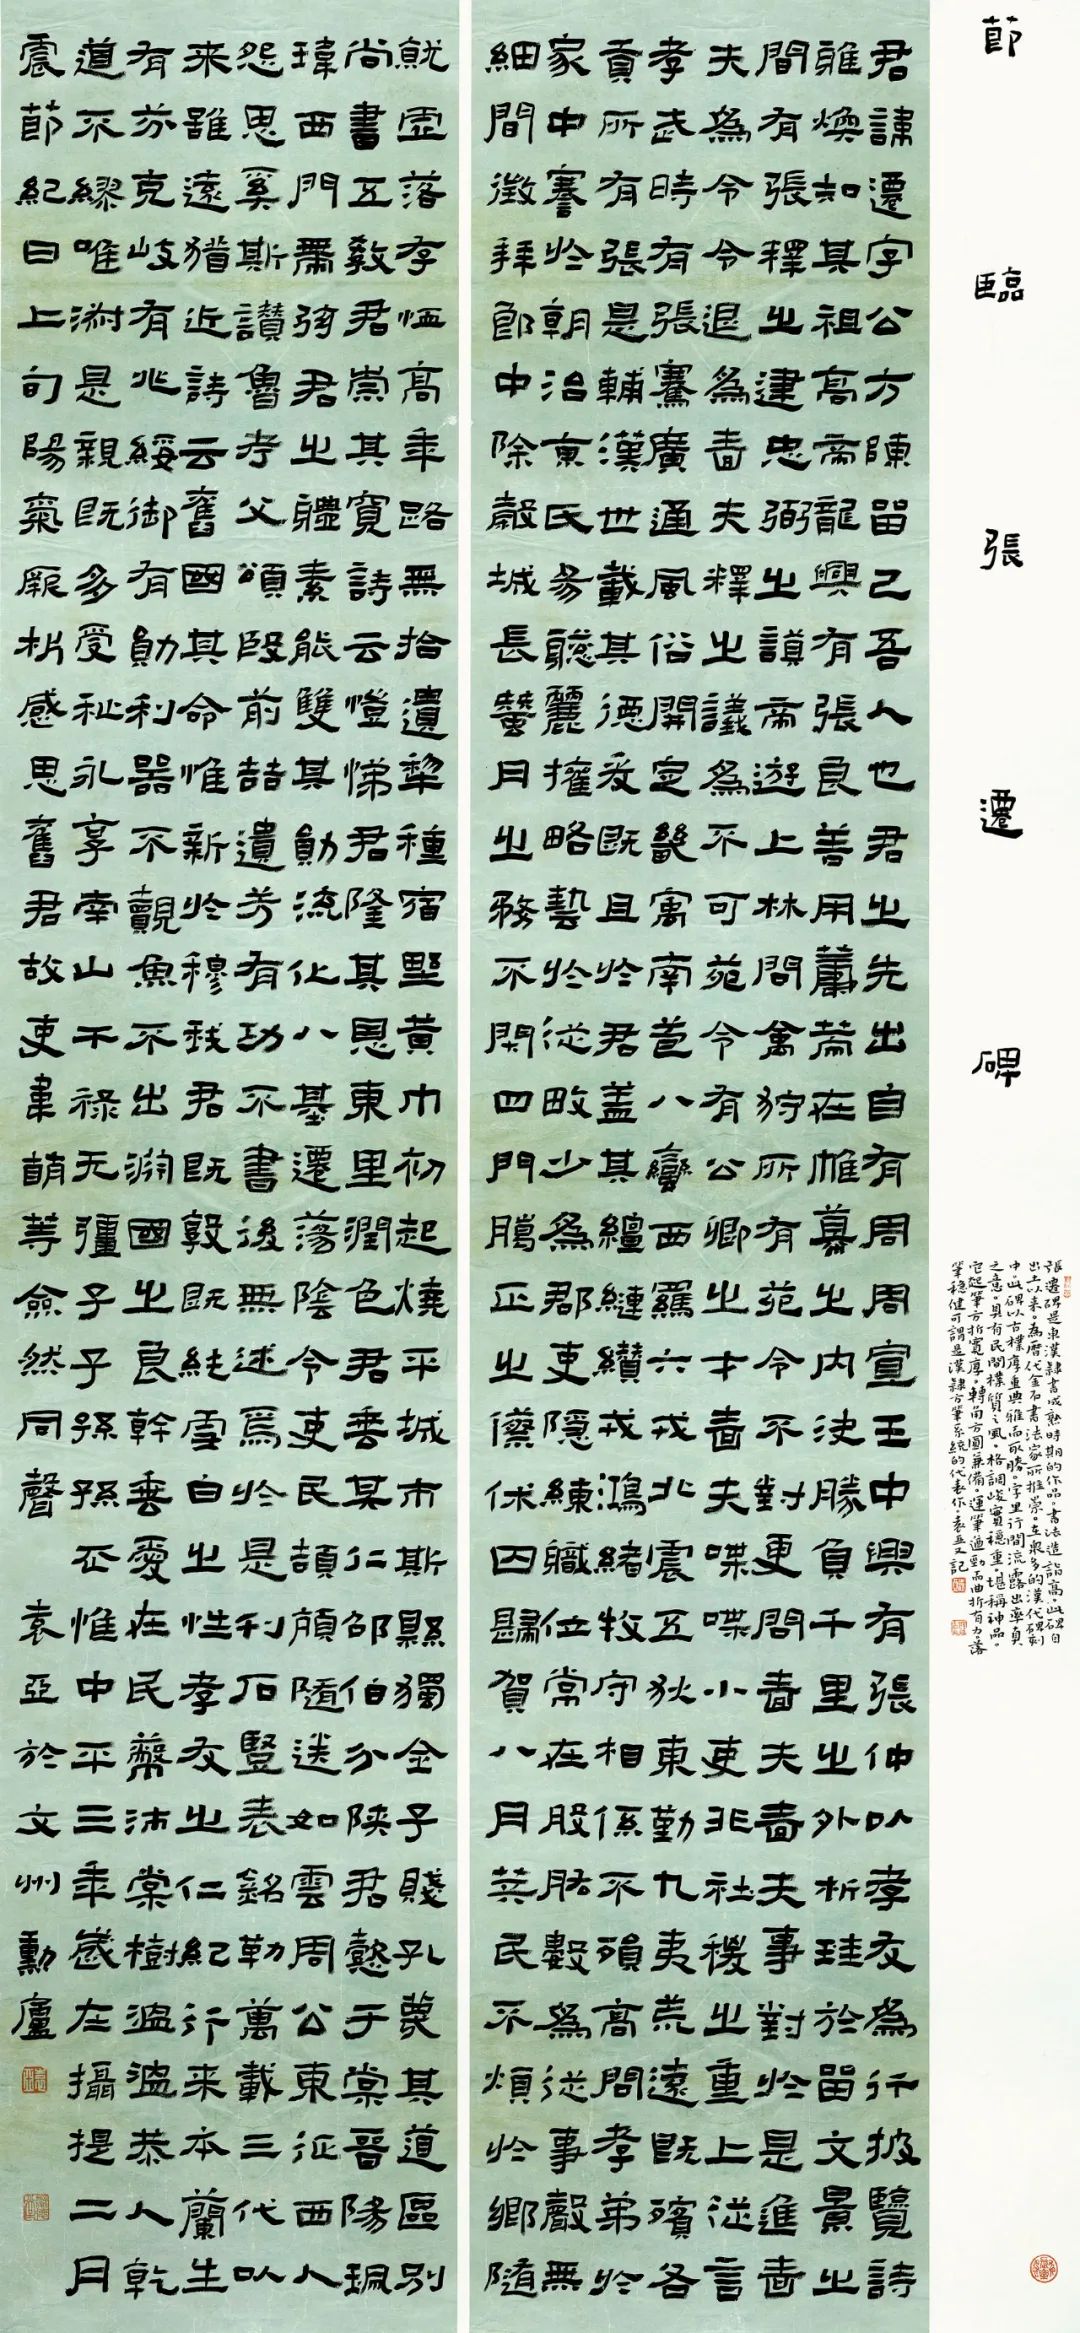 節臨張遷碑
張遷碑是東漢隸書成熟時期的作品。書法造詣高。此碑自
出土以來。為歷代金石書法家所推崇。在衆多的漢代碑刻
中。此碑以古樸厚重典雅而取勝。字里行間流露出率真
之意。具有民間樸質之風。格調峻實穩重。堪稱神品。
它起筆方折寬厚。轉角方圓兼備。運筆遒勁而曲折有力。落
筆穩健可謂是漢隸方筆系統的代表作。袁亞文記
君諱遷字公方陳留己吾人也君之先出自有周周宣王中興有張仲以孝友為行披覽詩
雅煥知其祖高帝龍興有張良善用籌策在帷幕之內決勝負千里之外析珪於留文景之
間有張釋之建忠弼之謨帝遊上林問禽狩所有苑令不對更問嗇夫嗇夫事對於是進嗇
夫為令令退為嗇夫釋之議為不可苑令有公卿之才嗇夫喋喋小吏非社稷之重上從言
孝武時有張騫廣通風俗開定畿寓南苞八蠻西羈六戎北震五狄東勤九夷荒遠既殯各
貢所有張是輔漢世載其德爰既且於君蓋其纏縺纘戎鴻緒牧守相係不殞高問孝弟於
家中謇於朝治京氏易聰麗權略藝於從畋少為郡吏隱練職位常在股肱數為從事聲無
細間徵拜郎中除穀城長蠶月之務不閉四門臘正之僚休囚歸賀八月筭民不煩於鄉隨
就虛落存恤高年路無拾遺犁種宿野黃巾初起燒平城市斯縣獨全子賤孔蔑其道區別
尚書五教君崇其寬詩云愷悌君隆其恩東里潤色君垂其仁邵伯分陝君懿于棠晉陽珮
瑋西門帶弦君之體素能雙其勛流化八基遷蕩陰令吏民頡頏隨送如雲周公東征西人
怨思奚斯讚魯考父頌殷前喆遺芳有功不書後無述焉於是刊石豎表銘勒萬載三代以
來雖遠猶近詩云舊國其命惟新於穆我君既敦既純雪白之性孝友之仁紀行來本蘭生
有芬克岐有兆綏御有勛利器不覿魚不出淵國之良幹垂愛在民蔽沛棠樹溫溫恭人乾
道不繆唯淑是親既多受祉永享南山干祿无疆子子孫孫丕惟中平三年歲在攝提二月
震節紀日上旬陽氣厥析感思舊君故吏韋萌等僉然同聲 袁亞於文州勳廬